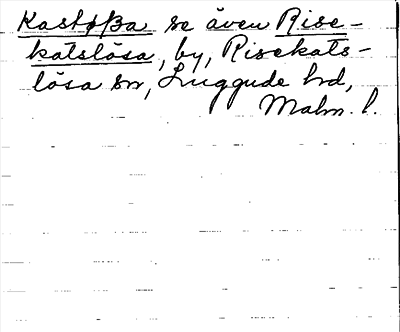 Kastløßa se även Rise-
katslösa, by, Risekats-
lösa sn, Luggude hd,
Malm. l.